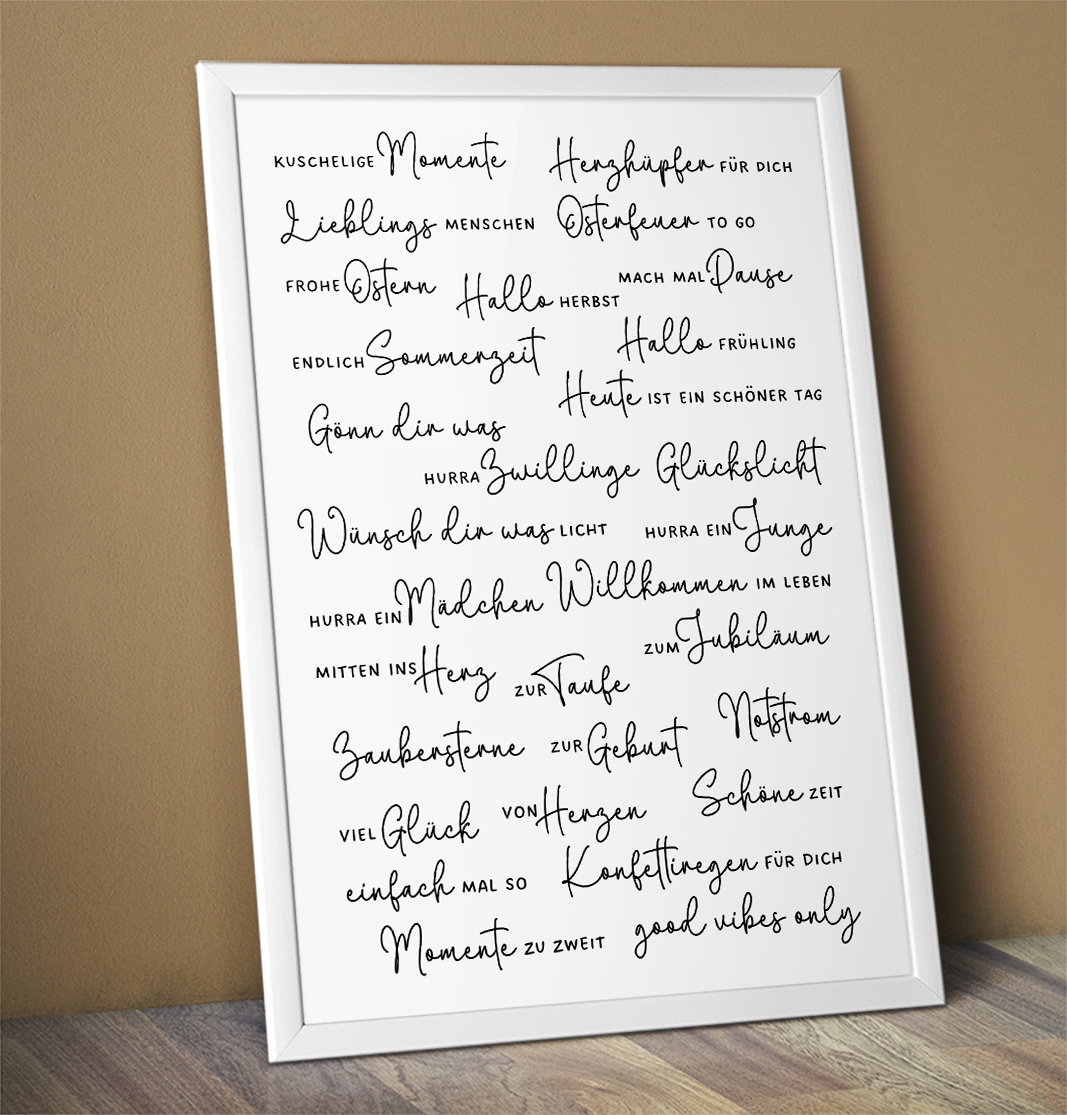 KUSCHELIGE Momente
Herzhüpfer FÜR DICH
Lieblings MENSCHEN
Osterfeuer TO GO
FROHE Ostern
Hallo HERBST
MACH MAL Pause
ENDLICH Sommerzeit
Hallo FRÜHLING
Heute IST EIN SCHÖNER TAG
Gönn dir was
HURRA Zwillinge
Glückslicht
Wünsch dir was LICHT
HURRA EIN Junge
HURRA EIN Mädchen
Willkommen IM LEBEN
MITTEN INS Herz
ZUR Taufe
ZUM Jubiläum
Zaubersterne
ZUR Geburt
Notstrom
VIEL Glück
VON Herzen
Schöne ZEIT
einfach MAL SO
Konfettiregen FÜR DICH
Momente ZU ZWEIT
good vibes only